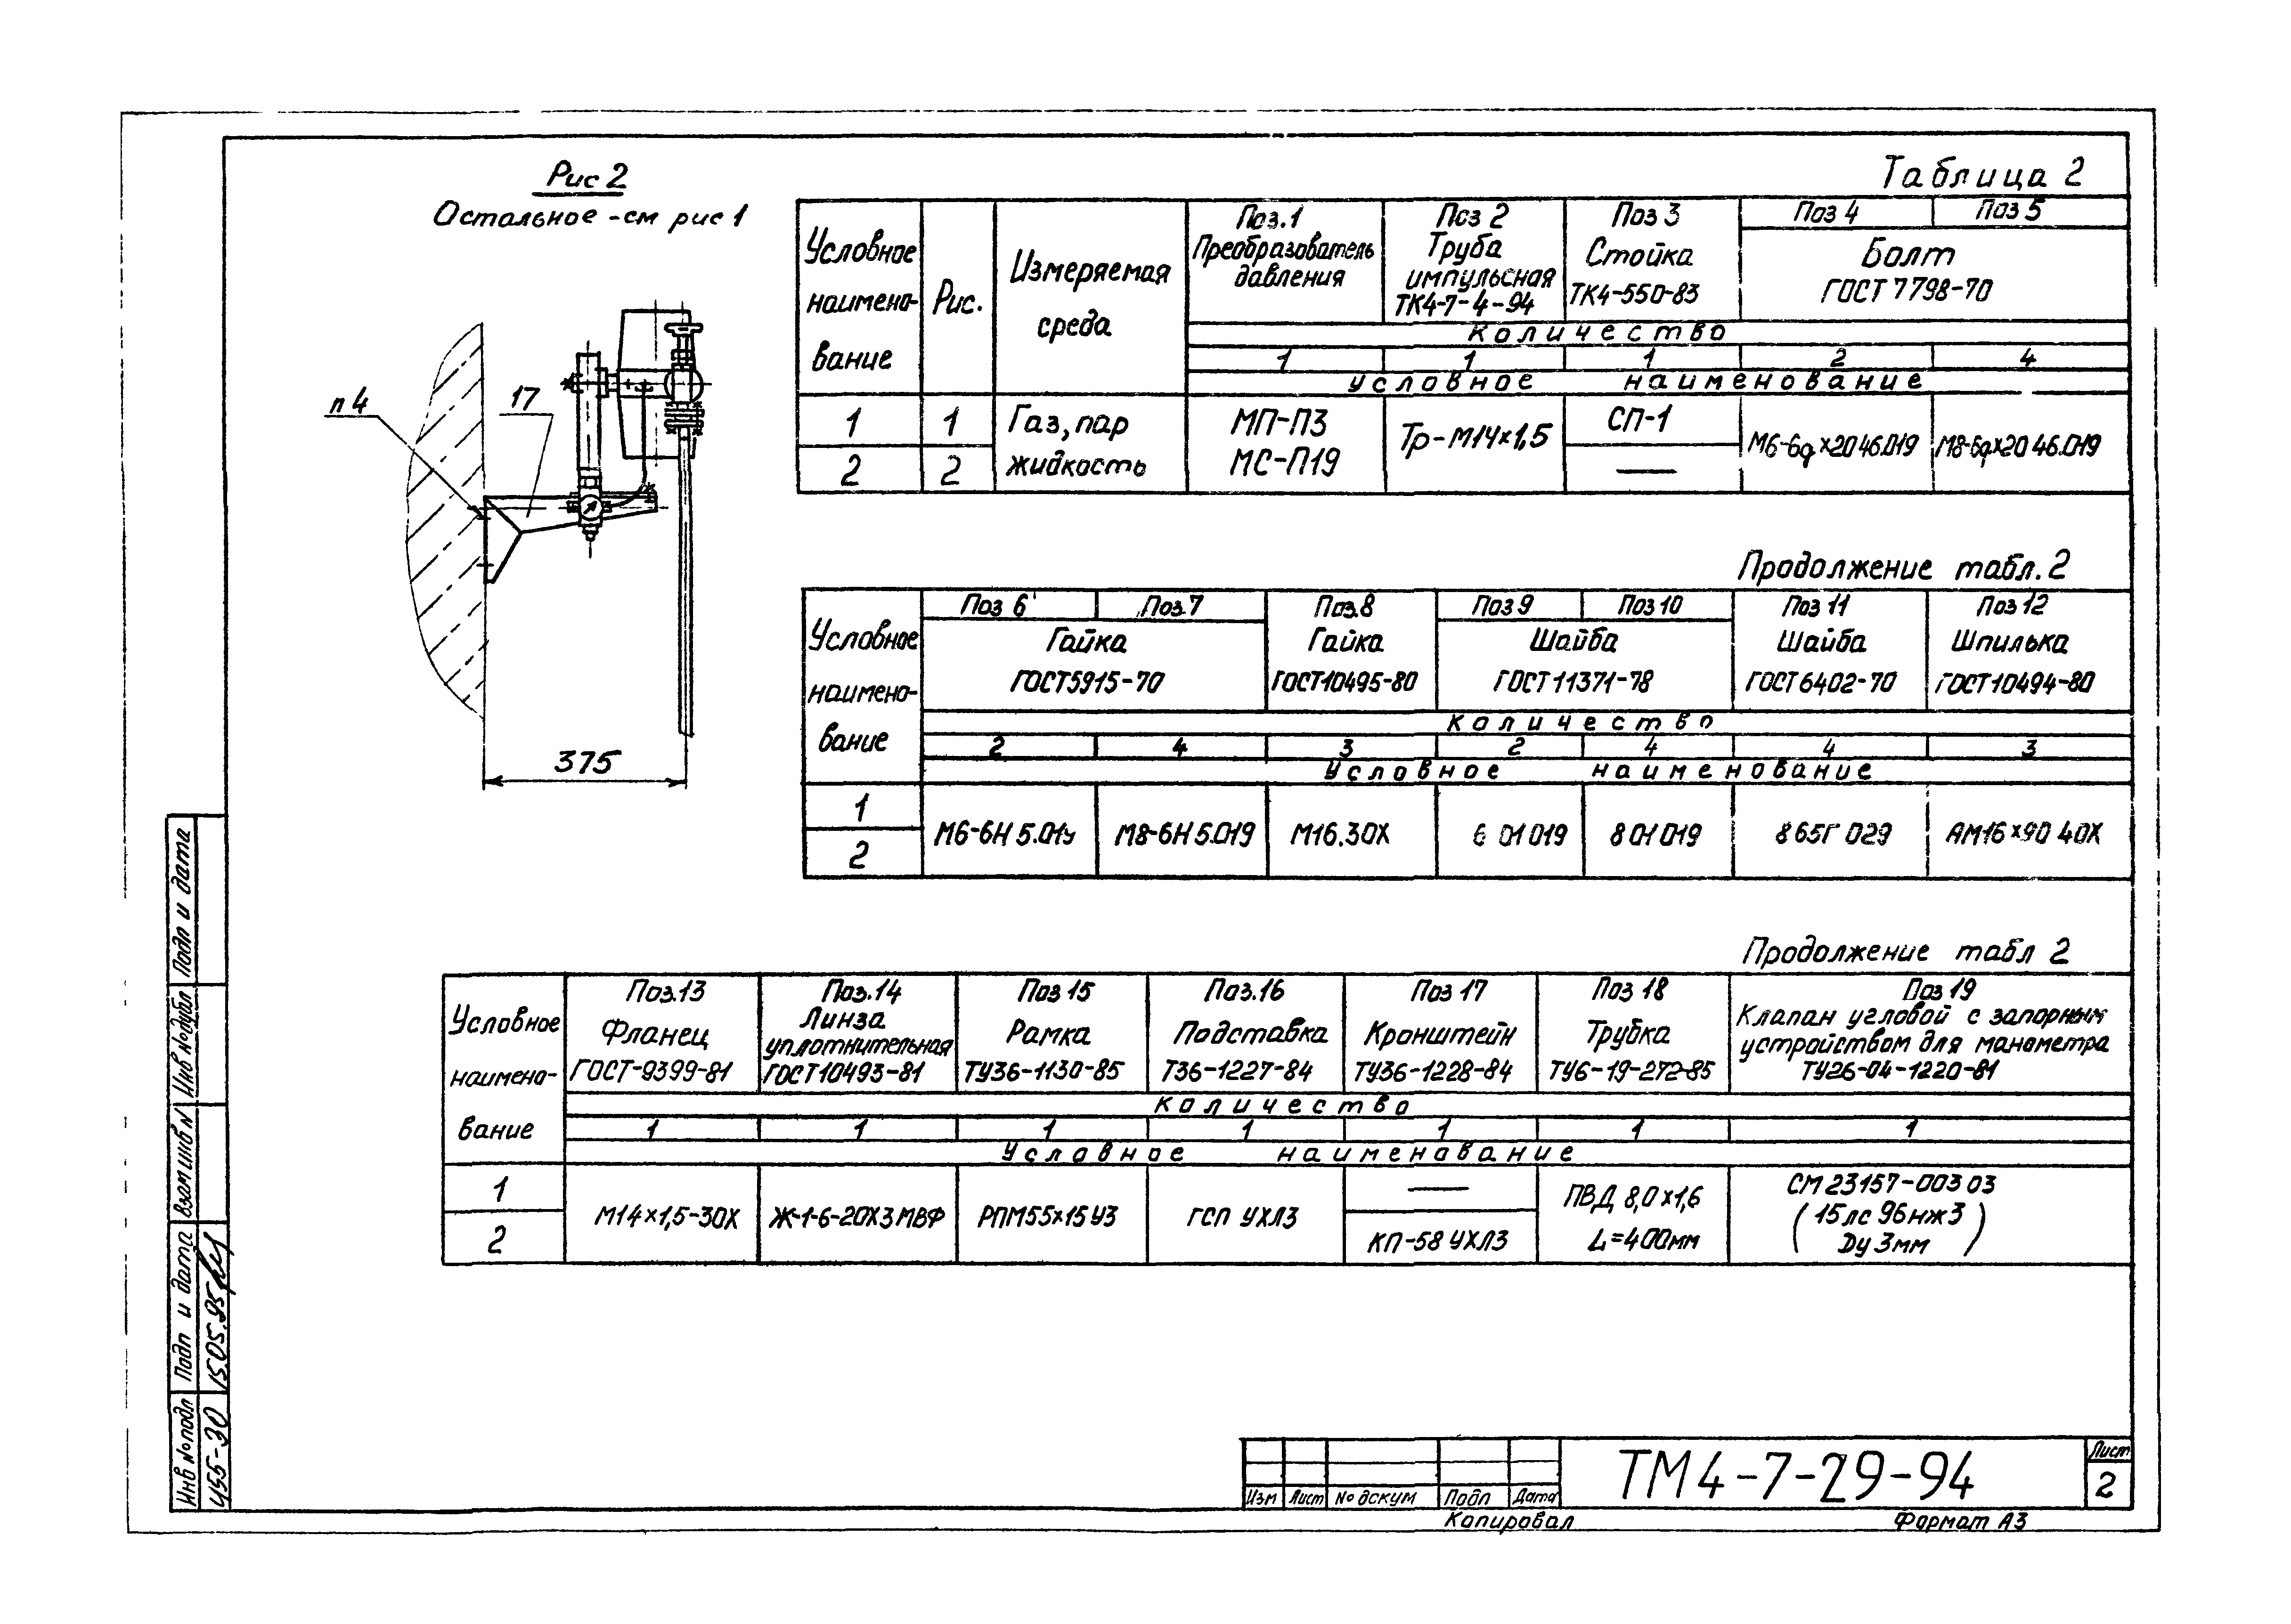 Рис 2
Остальное -см рис 1
п 4
17
375
Таблица 2
Условное наимено- вание
Рис.
Измеряемая среда
Поз.1 Преобразователь давления
Поз 2 Труба импульсная ТК4-7-4-94
Поз 3 Стойка ТК4-550-83
Поз 4
Поз 5
Болт ГОСТ 7798-70
Количество
1 1 1 2 4
условное наименование
1 1 Газ, пар МП-П3 Тр-М14х1,5 СП-1 М6-6gх20 46.019 М8-6gх20 46.019
2 2 жидкость МС-П19 —
Продолжение табл. 2
Условное наимено- вание
Поз 6 Поз.7 Поз.8 Поз 9 Поз 10 Поз 11 Поз 12
Гайка Гайка Шайба Шайба Шпилька
ГОСТ5915-70 ГОСТ10495-80 ГОСТ 11371-78 ГОСТ 6402-70 ГОСТ10494-80
Количество
2 4 3 2 4 4 3
Условное наименование
1
2
М6-6Н 5.019 М8-6Н 5.019 М16.30Х 6 01 019 8 01 019 8 65Г 029 АМ16х90 40Х
Продолжение табл 2
Условное наимено- вание
Поз.13 Поз.14 Поз 15 Поз.16 Поз 17 Поз 18 Поз 19
Фланец ГОСТ-9399-81
Линза уплотнительная ГОСТ10493-81
Рамка ТУ36-1130-85
Подставка Т36-1227-84
Кронштейн ТУ36-1228-84
Трубка ТУ6-19-272-85
Клапан угловой с запорным устройством для манометра ТУ26-04-1220-81
количество
1 1 1 1 1 1 1
Условное наименование
1
2
М14х1,5-30Х Ж-1-6-20Х3МВФ РПМ55х15 У3 ГСП УХЛ3
—
КП-58 УХЛ3
ПВД 8,0х1,6
L=400мм
СМ 23157-003 03
(15лс 96нж3
Dу 3мм)
Подп и дата
Инв №дубл
Взам инв N
Подп и дата
15.05.95
Инв №подл
455-30
Изм Лист № докум Подп Дата
ТМ4-7-29-94
Лист
2
Копировал
Формат А3